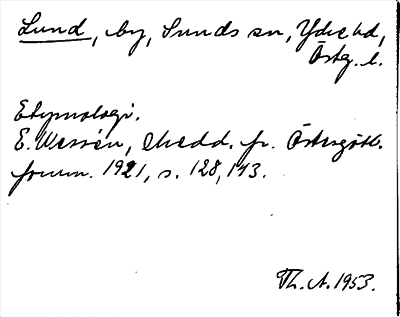 Lund, by, Sunds sn, Ydre hd,
Östg. l.
Etymologi.
E. Wessén, Medd. fr. Östergötl.
fornm. 1921, s. 128, 143.
Th. A. 1953.